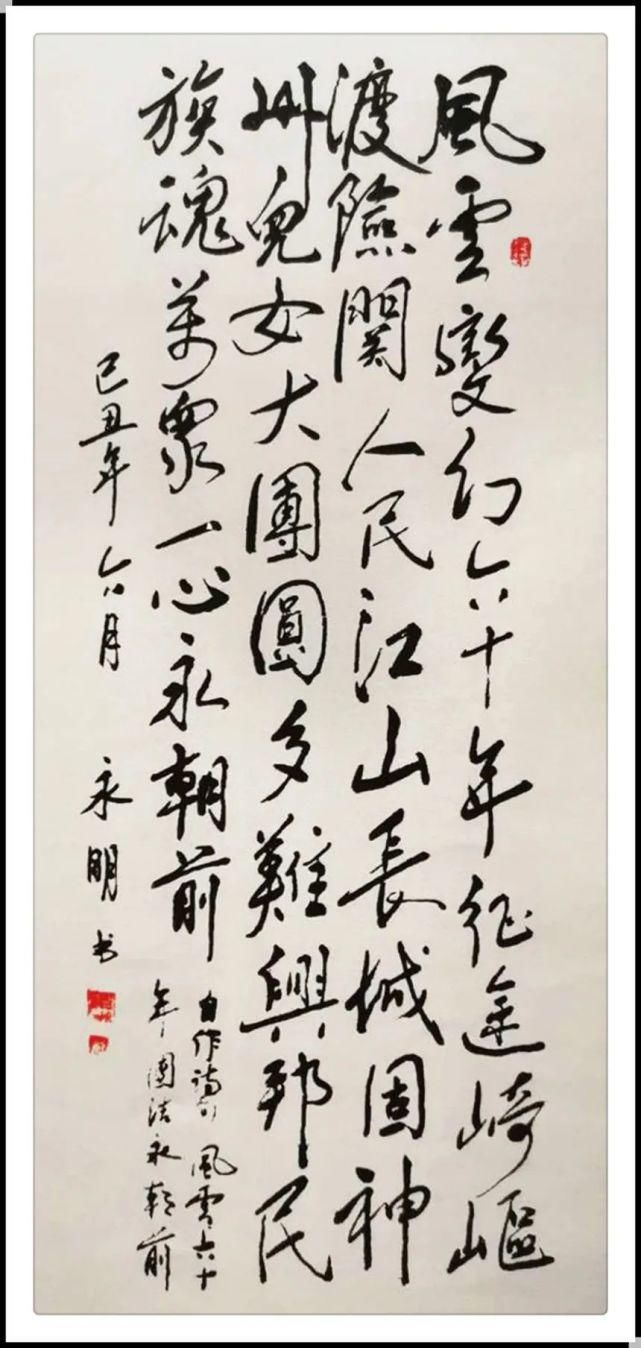 風雲變幻六十年征途崎嶇
渡險關人民江山長城固神
州兒女大團圓多難興邦民
族魂萬眾一心永朝前
自作詩句風雲六十
年團结永朝前
己丑年六月 永明书